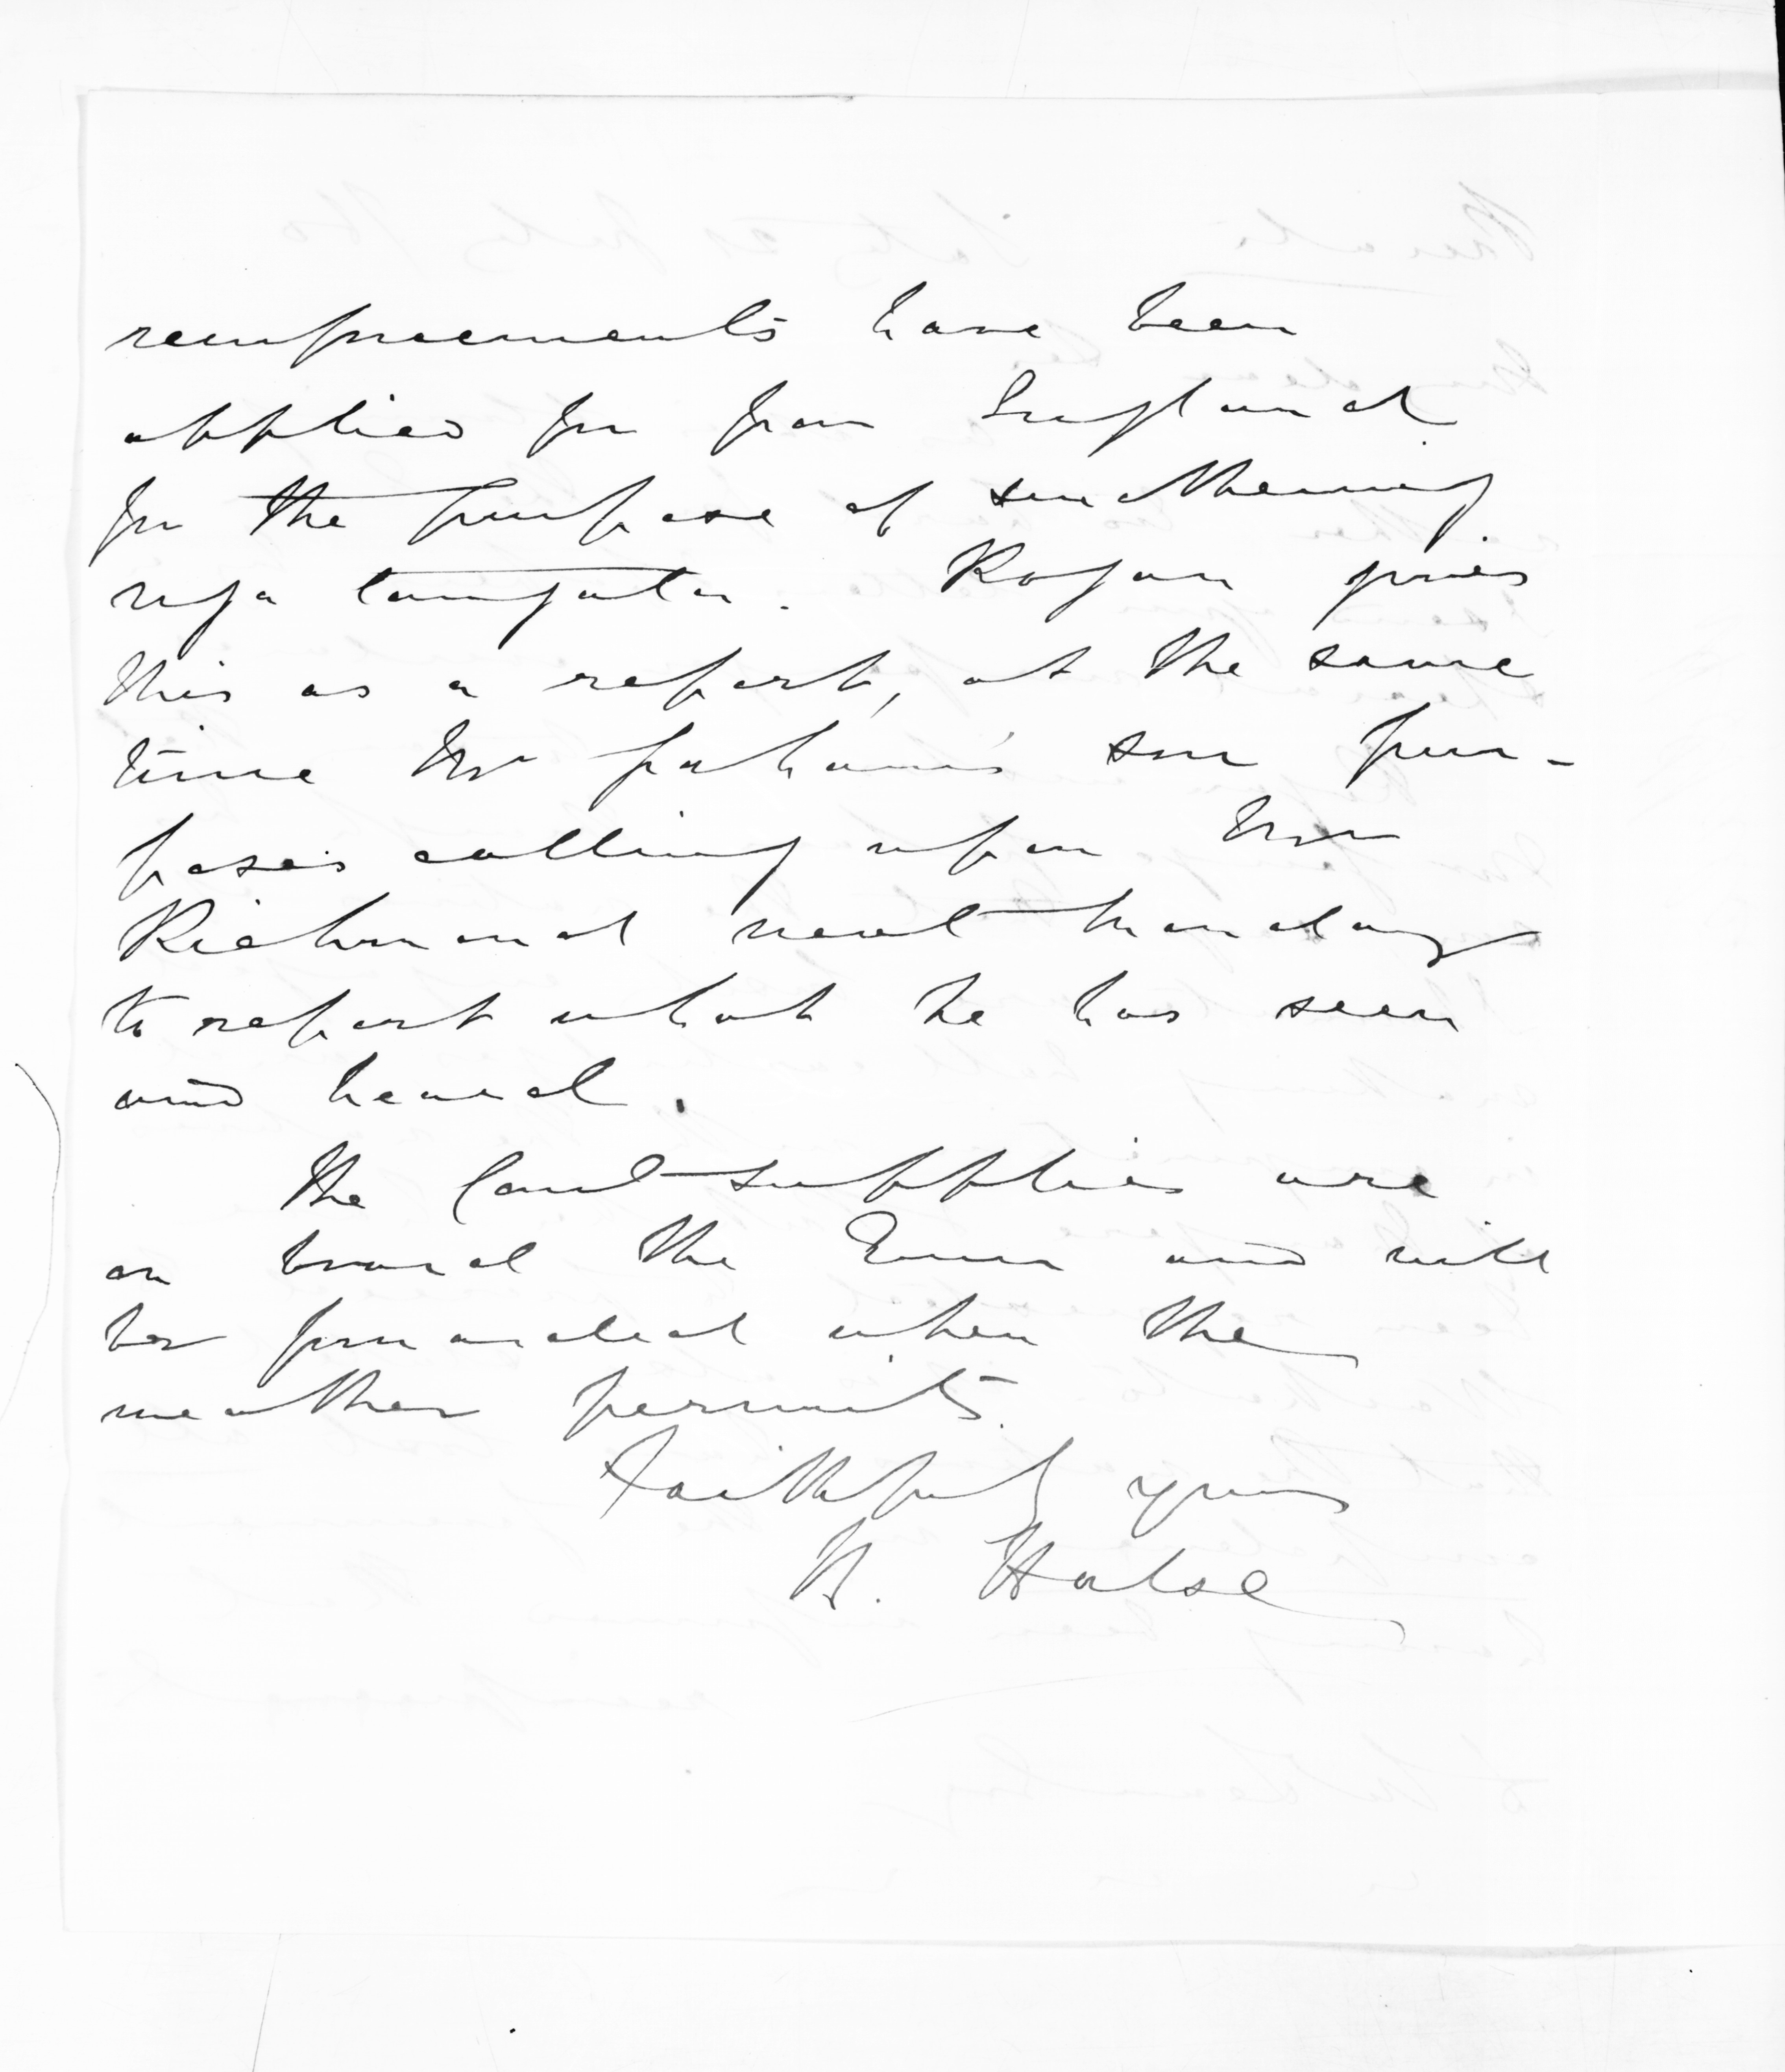 reinforcements have been
applied for from England
for the purpose of smothering
nga tangata. Rogan gives
this as a report, at the same
time Mr Graham's son pur-
poses calling upon Mr
Richmond next Monday
to report what he has seen
and heard.
The last supplies are
on board the Emma and will
be forwarded when the
weather permits.
Faithfully yours
H. Halse